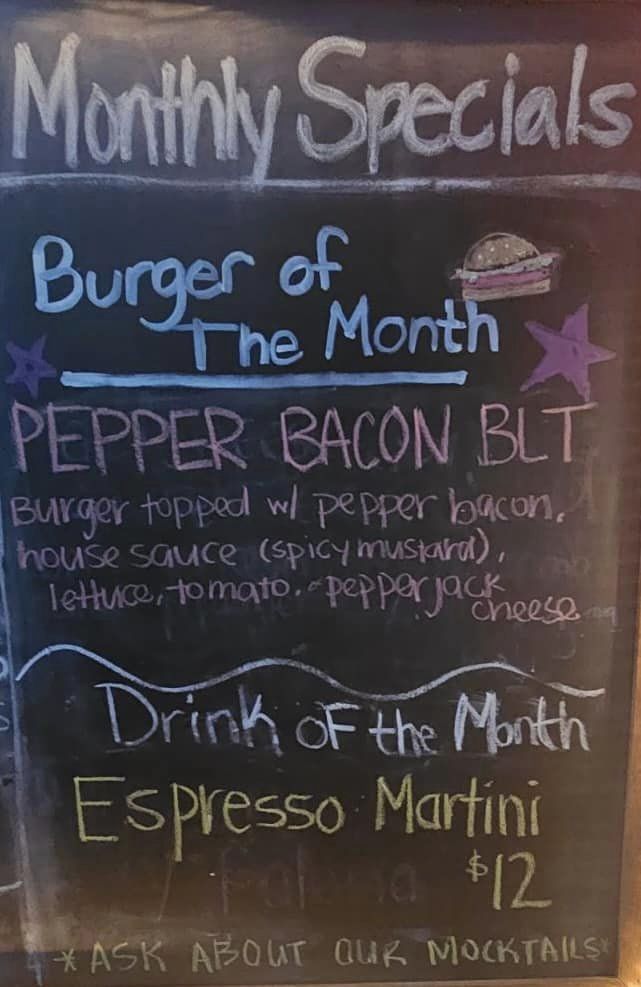 Monthly Specials
Burger of
The Month
PEPPER BACON BLT
Burger topped w/ pepper bacon,
house sauce (spicy mustard),
lettuce, tomato, pepper jack
cheese
Drink of the Month
Espresso Martini
$12
*ASK ABOUT OUR MOCKTAILS*